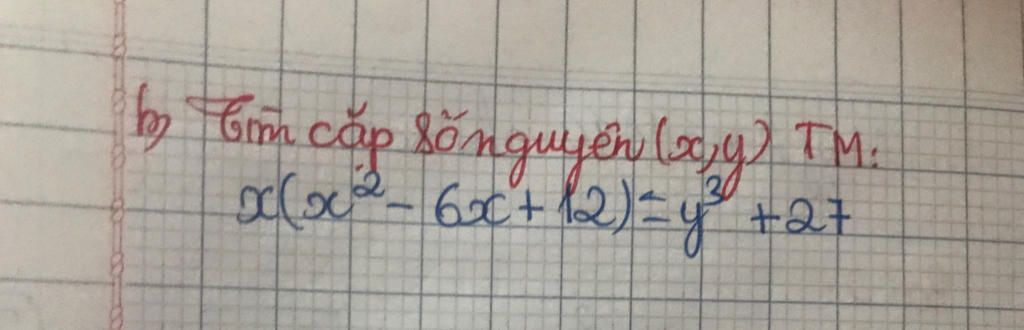 b) Tìm cặp số nguyên (x,y) TM:
x(x² - 6x + 12) = y³ + 27